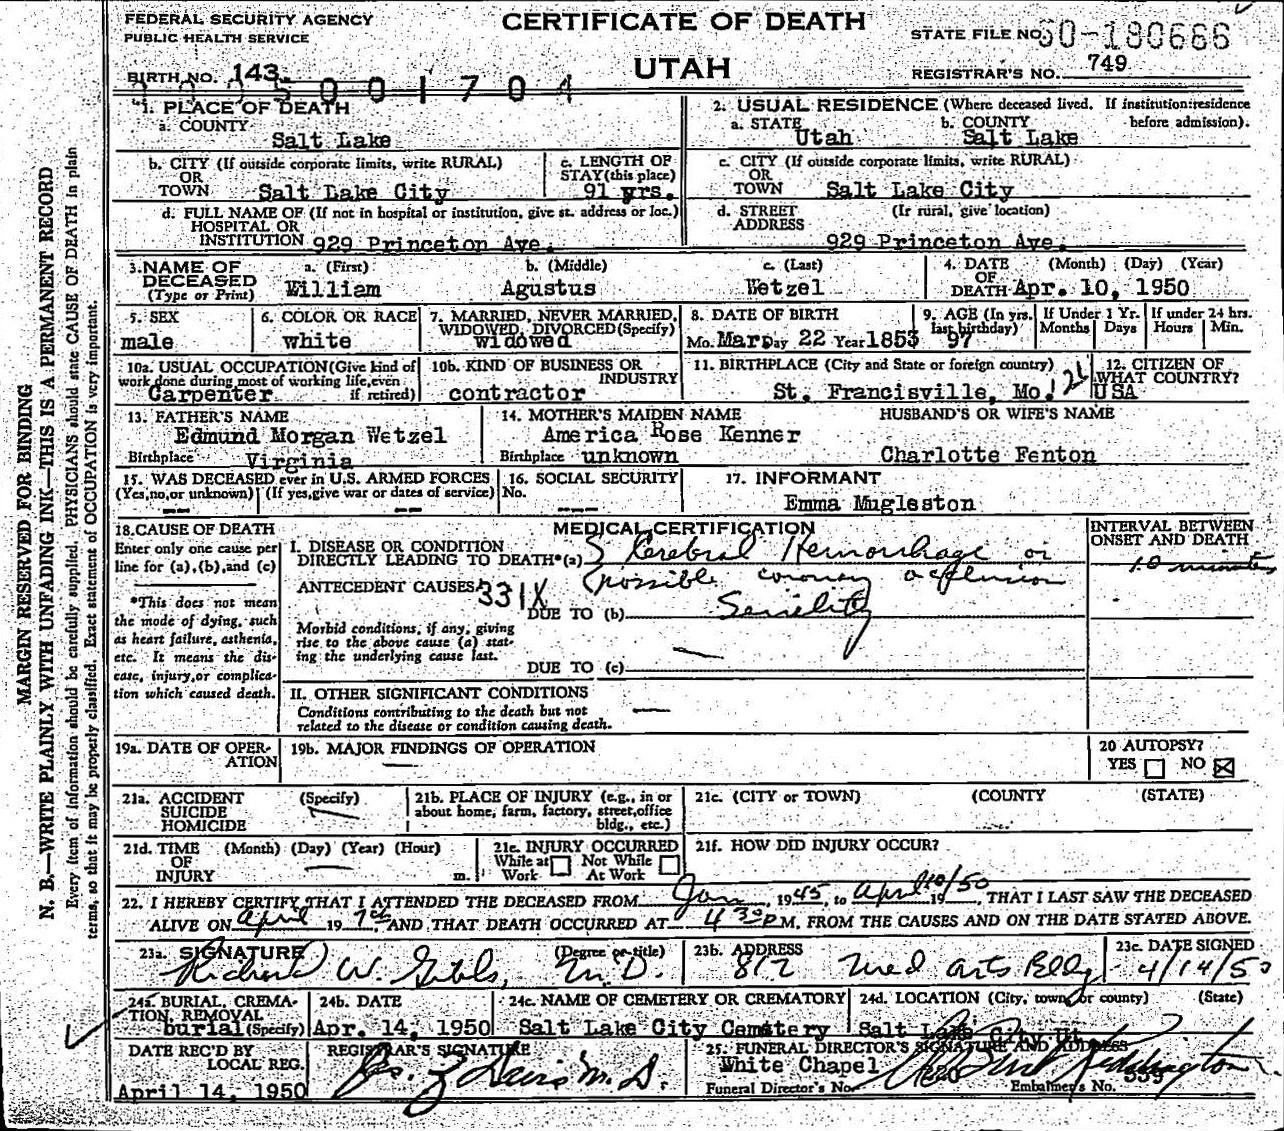 FEDERAL SECURITY AGENCY
PUBLIC HEALTH SERVICE
CERTIFICATE OF DEATH
UTAH
STATE FILE NO. 50-180686
REGISTRAR'S NO. 749
BIRTH NO. 143
5 0 0 1 7 0 4
1. PLACE OF DEATH
a. COUNTY
Salt Lake
b. CITY (If outside corporate limits, write RURAL)
OR
TOWN Salt Lake City
c. LENGTH OF
STAY (this place)
91 yrs.
d. FULL NAME OF (If not in hospital or institution, give st. address or loc.)
HOSPITAL OR
INSTITUTION 929 Princeton Ave.
2. USUAL RESIDENCE (Where deceased lived. If institution: residence
before admission).
a. STATE Utah
b. COUNTY Salt Lake
c. CITY (If outside corporate limits, write RURAL)
OR
TOWN Salt Lake City
d. STREET (If rural, give location)
ADDRESS
929 Princeton Ave.
3. NAME OF DECEASED
(Type or Print)
a. (First) William
b. (Middle) Agustus
c. (Last) Wetzel
4. DATE (Month) (Day) (Year)
OF
DEATH Apr. 10, 1950
5. SEX
male
6. COLOR OR RACE
white
7. MARRIED, NEVER MARRIED,
WIDOWED, DIVORCED (Specify)
widowed
8. DATE OF BIRTH
Mo. Mar Day 22 Year 1853
9. AGE (In yrs. last birthday) 97
If Under 1 Yr. Months Days
If under 24 hrs. Hours Min.
10a. USUAL OCCUPATION (Give kind of
work done during most of working life, even
if retired)
Carpenter
10b. KIND OF BUSINESS OR
INDUSTRY
contractor
11. BIRTHPLACE (City and State or foreign country)
St. Francisville, Mo.
12. CITIZEN OF
WHAT COUNTRY?
USA
13. FATHER'S NAME
Edmund Morgan Wetzel
Birthplace Virginia
14. MOTHER'S MAIDEN NAME
America Rose Kenner
Birthplace unknown
HUSBAND'S OR WIFE'S NAME
Charlotte Fenton
15. WAS DECEASED ever in U.S. ARMED FORCES
(Yes, no, or unknown) (If yes, give war or dates of service)
-- --
16. SOCIAL SECURITY
No.
---
17. INFORMANT
Emma Mugleston
18. CAUSE OF DEATH
Enter only one cause per
line for (a), (b), and (c)
*This does not mean
the mode of dying, such
as heart failure, asthenia,
etc. It means the dis-
ease, injury, or complica-
tion which caused death.
MEDICAL CERTIFICATION
I. DISEASE OR CONDITION
DIRECTLY LEADING TO DEATH* (a) Cerebral Hemorrhage or
possible coronary occlusion
ANTECEDENT CAUSES 331X
DUE TO (b) Senility
Morbid conditions, if any, giving
rise to the above cause (a) stat-
ing the underlying cause last.
DUE TO (c)
II. OTHER SIGNIFICANT CONDITIONS
Conditions contributing to the death but not
related to the disease or condition causing death.
INTERVAL BETWEEN
ONSET AND DEATH
10 minutes
19a. DATE OF OPER-
ATION
19b. MAJOR FINDINGS OF OPERATION
20 AUTOPSY?
YES NO
21a. ACCIDENT (Specify)
SUICIDE
HOMICIDE
21b. PLACE OF INJURY (e.g., in or
about home, farm, factory, street, office
bldg., etc.)
21c. (CITY or TOWN) (COUNTY) (STATE)
21d. TIME (Month) (Day) (Year) (Hour)
OF
INJURY m.
21e. INJURY OCCURRED
While at Work Not While At Work
21f. HOW DID INJURY OCCUR?
22. I HEREBY CERTIFY THAT I ATTENDED THE DECEASED FROM Jan, 1945, to April 10/50 19, THAT I LAST SAW THE DECEASED
ALIVE ON April 19 7th, AND THAT DEATH OCCURRED AT 4 30 P M. FROM THE CAUSES AND ON THE DATE STATED ABOVE.
23a. SIGNATURE (Degree or title)
Richard W. Gibbs, M.D.
23b. ADDRESS
812 Med Arts Bldg
23c. DATE SIGNED
4/14/50
24a. BURIAL, CREMA-
TION, REMOVAL
burial (Specify)
24b. DATE
Apr. 14, 1950
24c. NAME OF CEMETERY OR CREMATORY
Salt Lake City Cemetery
24d. LOCATION (City, town, or county) (State)
Salt Lake City Ut.
DATE REC'D BY
LOCAL REG.
April 14, 1950
REGISTRAR'S SIGNATURE
Davis M.D.
25. FUNERAL DIRECTOR'S SIGNATURE AND ADDRESS
White Chapel
Funeral Director's No.
Embalmer's No. 539
MARGIN RESERVED FOR BINDING
N. B.—WRITE PLAINLY WITH UNFADING INK—THIS IS A PERMANENT RECORD
Every item of information should be carefully supplied. PHYSICIANS should state CAUSE OF DEATH in plain
terms, so that it may be properly classified. Exact statement of OCCUPATION is very important.